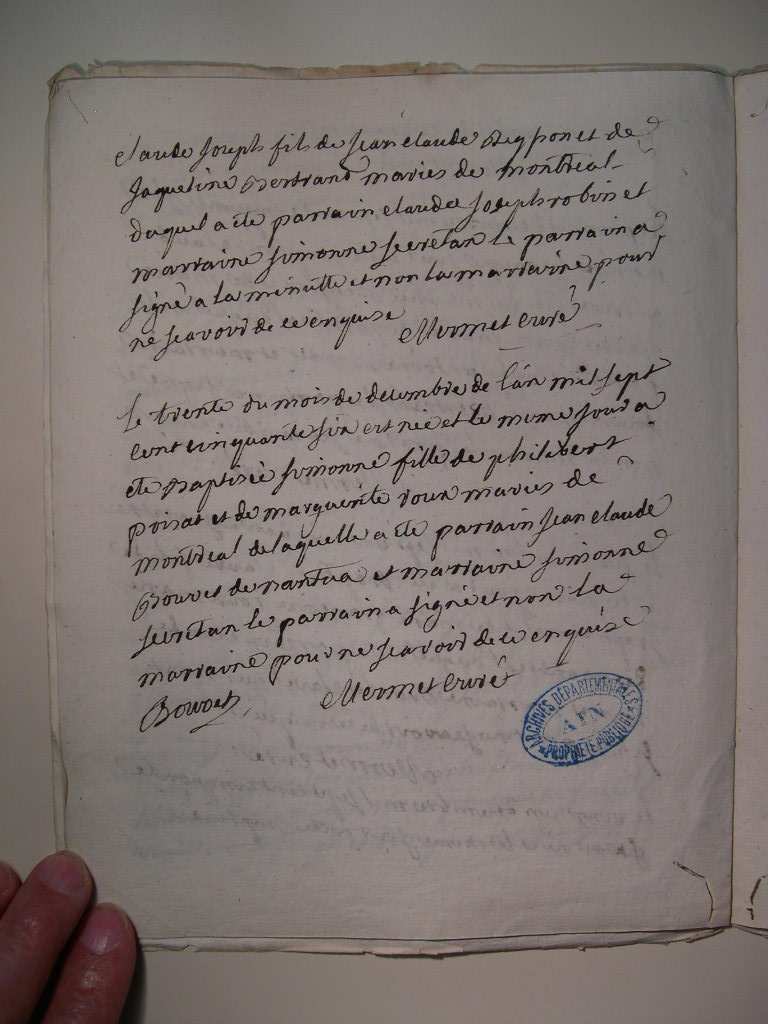 claude Joseph fils de jean claude Reyponet de
Jaqueline Bertrand maries de montreal
duquel a ete parrain claude Joseph robin et
marraine simonne secretan le parrain a
signé a la minutte et non la marraine pour
ne scavoir de ce enquise Mermet curé
le trente du mois de decembre de l'an mil sept
cent cinquante six est née et le meme jour a
ete Baptisée simonne fille de philibert
poisat et de marguerite roux maries de
montreal de laquelle a ete parrain jean claude
Bouvet de nantua et marraine simonne
secretan le parrain a signé et non la
marraine pour ne scavoir de ce enquise
Bouvet Mermet curé
ARCHIVES DÉPARTEMENTALES
AIN
PROPRIÉTÉ PUBLIQUE